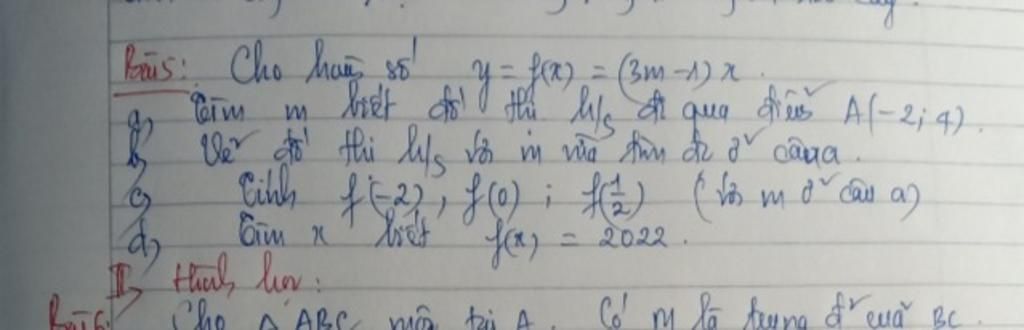 Bài 5: Cho hàm số y = f(x) = (3m - 1) x.
a, Tìm m biết đồ thị h/s đi qua điểm A(-2; 4).
b, Vẽ đồ thị h/s với m vừa tìm đc ở câu a.
c, Tính f(-2), f(0); f(1/2) (với m ở câu a)
d, Tìm x biết f(x) = 2022.
II, Hình học:
Bài 6: Cho Δ ABC A. Có M là trung đ' của BC